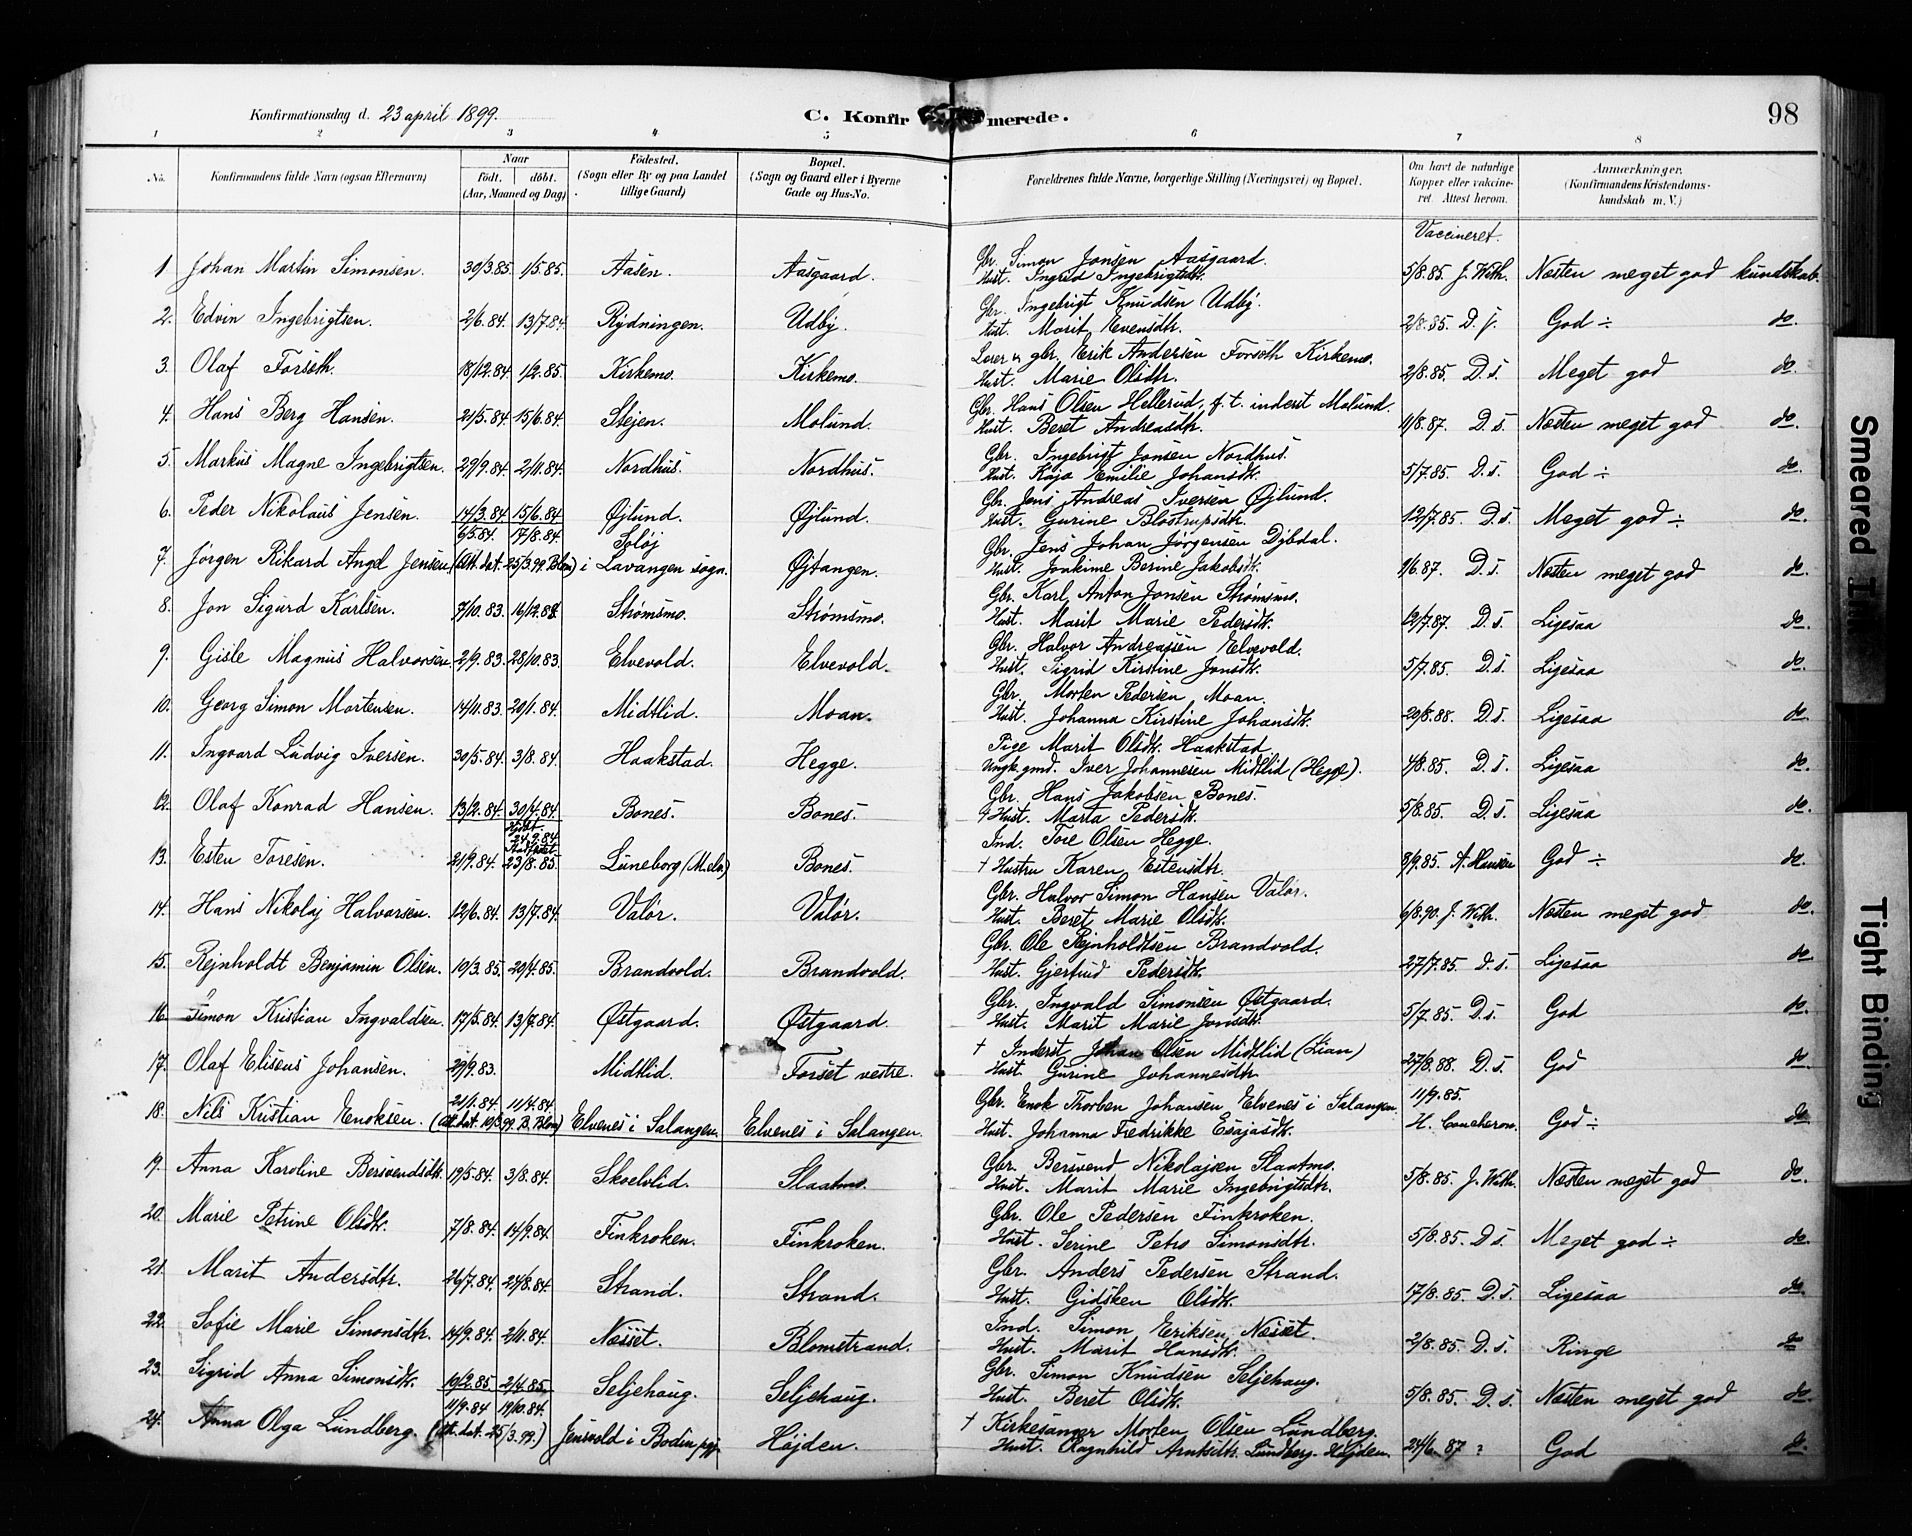 Konfirmationsdag d. 23 april 1899.
C. Konfirmerede.
98
1 2 3 4 5 6 7 8
No. Konfirmandens fulde Navn (ogsaa Efternavn) Naar født. døbt. (Aar, Maaned og Dag) Fødested. (Sogn eller By og paa Landet tillige Gaard) Bopæl. (Sogn og Gaard eller i Byerne Gade og Hus-No. Forældrenes fulde Navne, borgerlige Stilling (Næringsvei) og Bopæl. Om havt de naturlige Kopper eller vakcineret. Attest herom. Anmærkninger. (Konfirmandens Kristendomskundskab m. V.)
Vaccineret.
1. Johan Martin Simonsen. 30/3.85. 1/5.85. Aasen. Aasgaard. Gbr. Simon Jonsen Aasgaard. Hust. Ingrid Ingebrigtsdtr. 5/8.85. J. Weth. Næsten meget god kundskab.
2. Edvin Ingebrigtsen. 2/6.84. 13/7.84. Rydningen. Udby. Gbr. Ingebrigt Knudsen Udby. Hust. Marit Evensdtr. 2/8.85. D. s. God ÷ do.
3. Olaf Forseth. 18/12.84 1/2.85. Kirkemo. Kirkemo. Lærer & gbr. Erik Andersen Forseth Kirkemo. Hust. Marie Olsdtr. 2/8.85. D. s. Meget god do.
4. Hans Berg Hansen. 21/5.84. 15/6.84. Stejen. Molund. Gbr. Hans Olsen Hellerud, f. t. inderst Molund. Hust. Beret Andreasdtr. 11/8.87. D. s. Næsten meget god do.
5. Markus Magne Ingebrigtsen. 29/9.84. 2/11.84. Nordhus. Nordhus. Gbr. Ingebrigt Jonsen Nordhus. Hust. Kaja Emilie Johansdtr. 5/7.85. D. s. God ÷ do.
6. Peder Nikolaus Jensen. 14/3.84 15/6.84 Øjlund. Øjlund. Gbr. Jens Andreas Iversen Øjlund. Hust. Gurine Blostrupsdtr. 12/7.85. D. s. Meget god ÷ do.
7. Jørgen Rikard Angel Jensen 6/5.84. 17/8.84. (Att. dat. 25/3.99. Blom) Soløj i Lavangen sogn. Øjtangen. Gbr. Jens Johan Jørgensen Dybdal. Hust. Joakime Berine Jakobsdtr. 1/6.87. D. s. Næsten meget god do.
8. Jon Sigurd Karlsen. 7/10.83. 16/12.83. Strømsmo. Strømsmo. Gbr. Karl Anton Jonsen Strømsmo. Hust. Marit Marie Pedersdtr. 12/7.87. D. s. Ligesaa do.
9. Gisle Magnus Halvorsen. 2/9.83. 28/10.83. Elvevold. Elvevold. Gbr. Halvor Andreassen Elvevold. Hust. Sigrid Kirstine Jonsdtr. 5/7.85. D. s. Ligesaa do.
10. Georg Simon Mortensen. 14/11.83. 20/1.84. Midtlid. Moan. Gbr. Morten Pedersen Moan. Hust. Johanna Kirstine Johansdtr. 20/8.88. D. s. Ligesaa do.
11. Ingvard Ludvig Iversen. 30/5.84. 3/8.84. Haakstad. Hegge. Pige Marit Olsdtr. Haakstad Ungk. gmd. Iver Johannesen Midtlid (Hegge). 4/8.85. D. s. Ligesaa do.
12. Olaf Konrad Hansen. 13/2.84. 30/4.84. Bones. Bones. Gbr. Hans Jakobsen Bones. Hust. Marta Pedersdtr. 5/8.85. D. s. Ligesaa do.
13. Esten Toresen. 21/9.84. 23/8.85 Luneborg (M.elv) Bones. Ind. Tore Olsen Hegge. † Hustru Karen Estensdtr. 8/9.85. A. Hansen God ÷ do.
14. Hans Nikolaj Halvorsen. 12/6.84. 13/7.84. Valør. Valør. Gbr. Halvor Simon Hansen Valør. Hust. Beret Marie Olsdtr. 6/8.90. J. Weth. Næsten meget god do.
15. Rejnholdt Benjamin Olsen. 10/3.85. 20/4.85. Brandvold. Brandvold. Gbr. Ole Rejnholdtsen Brandvold. Hust. Gjertrud Pedersdtr. 27/7.85. D. s. Ligesaa do.
16. Simon Kristian Ingvaldsen. 17/5.84. 13/7.84. Østgaard. Østgaard. Gbr. Ingvald Simonsen Østgaard. Hust. Marit Marie Jonsdtr. 5/7.85. D. s. God do.
17. Olaf Eliseus Johansen. 29/9.83. Midtlid. Forset vestre. † Inderst Johan Olsen Midtlid (Lian) Hust. Gurine Johannesdtr. 27/8.88. D. s. God do.
18. Nils Kristian Enoksen. 21/1.84. 11/4.84. (Att. dat. 10/3.99. B. Blom) Elvenes i Salangen. Elvenes i Salangen. Gbr. Enok Thorben Johansen Elvenes i Salangen. Hust. Johanna Fredrikke Esajasdtr. 11/9.85. H. Coucheron. God ÷ do.
19. Anna Karoline Bersvendsdtr. 19/5.84. 3/8.84. Skoelvlid. Slaatmo. Gbr. Bersvend Nikolajsen Slaatmo. Hust. Marit Marie Ingebrigtsdtr. 5/8.85. J. Weth. Næsten meget god do.
20. Marie Petrine Olsdtr. 7/8.84. 14/9.84 Finkroken. Finkroken. Gbr. Ole Pedersen Finkroken. Hust. Serine Petro Simonsdtr. 5/8.85. D. s. Meget god ÷ do.
21. Marit Andersdtr. 26/7.84. 24/8.84. Strand. Strand. Gbr. Anders Pedersen Strand. Hust. Gidsken Olsdtr. 17/8.85. D. s. Ligesaa do.
22. Sofie Marie Simonsdtr. 14/9.84. 2/11.84. Næsset. Blomstrand. Ind. Simon Eriksen Næsset. Hust. Marit Hansdtr. 2/8.85. D. s. Ringe do
23. Sigrid Anna Simonsdtr. 10/2.85 2/4.85. Seljehaug. Seljehaug. Gbr. Simon Knudsen Seljehaug. Hust. Beret Olsdtr. 5/8.85. D. s. Næsten meget god do
24. Anna Olga Lundberg. 11/9.84 19/10.84. (Att. dat. 25/3.99.) Jensvold i Bodin pgj. Højden. † Kirkesanger Morten Olsen Lundberg. Hust. Ragnhild Arntsdtr. Lundberg. Højden. 24/6.87 ? God do.
Smeared Ink
Tight Binding